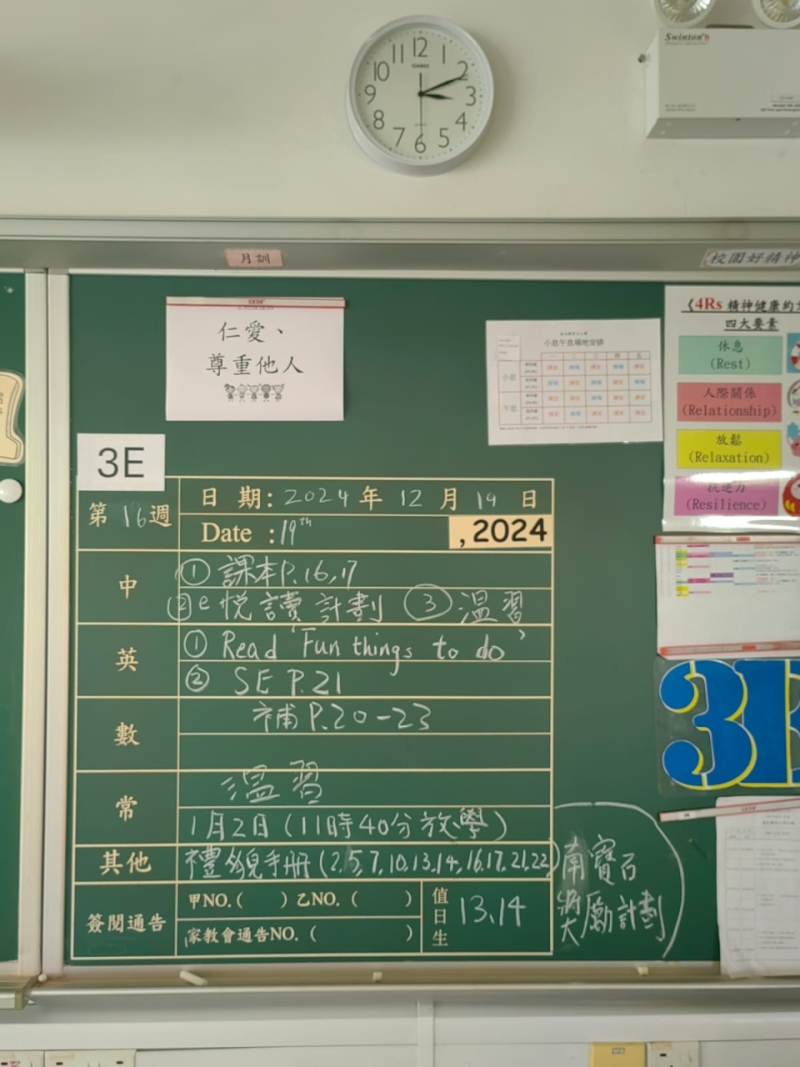 12 1 2 3 4 5 6 7 8 9 10 11
Swinton's
月訓
校園好精神
仁愛、
尊重他人
小息午息場地安排
小息
午息
《4Rs 精神健康約章
四大要素
休息
(Rest)
人際關係
(Relationship)
放鬆
(Relaxation)
抗逆力
(Resilience)
3E
第 16 週
日 期: 2024 年 12 月 19 日
Date : 19th , 2024
中
① 課本P.16,17
② e悅讀計劃 ③ 溫習
英
① Read 'Fun things to do'
② SE P.21
數
補P.20-23
常
溫習
1月2日(11時40分放學)
其他
禮貌手冊(2,5,7,10,13,14,16,17,21,22)
簽閱通告
甲NO.( ) 乙NO.( )
家教會通告NO.( )
值日生
13,14
南寶石
獎勵計劃
3E